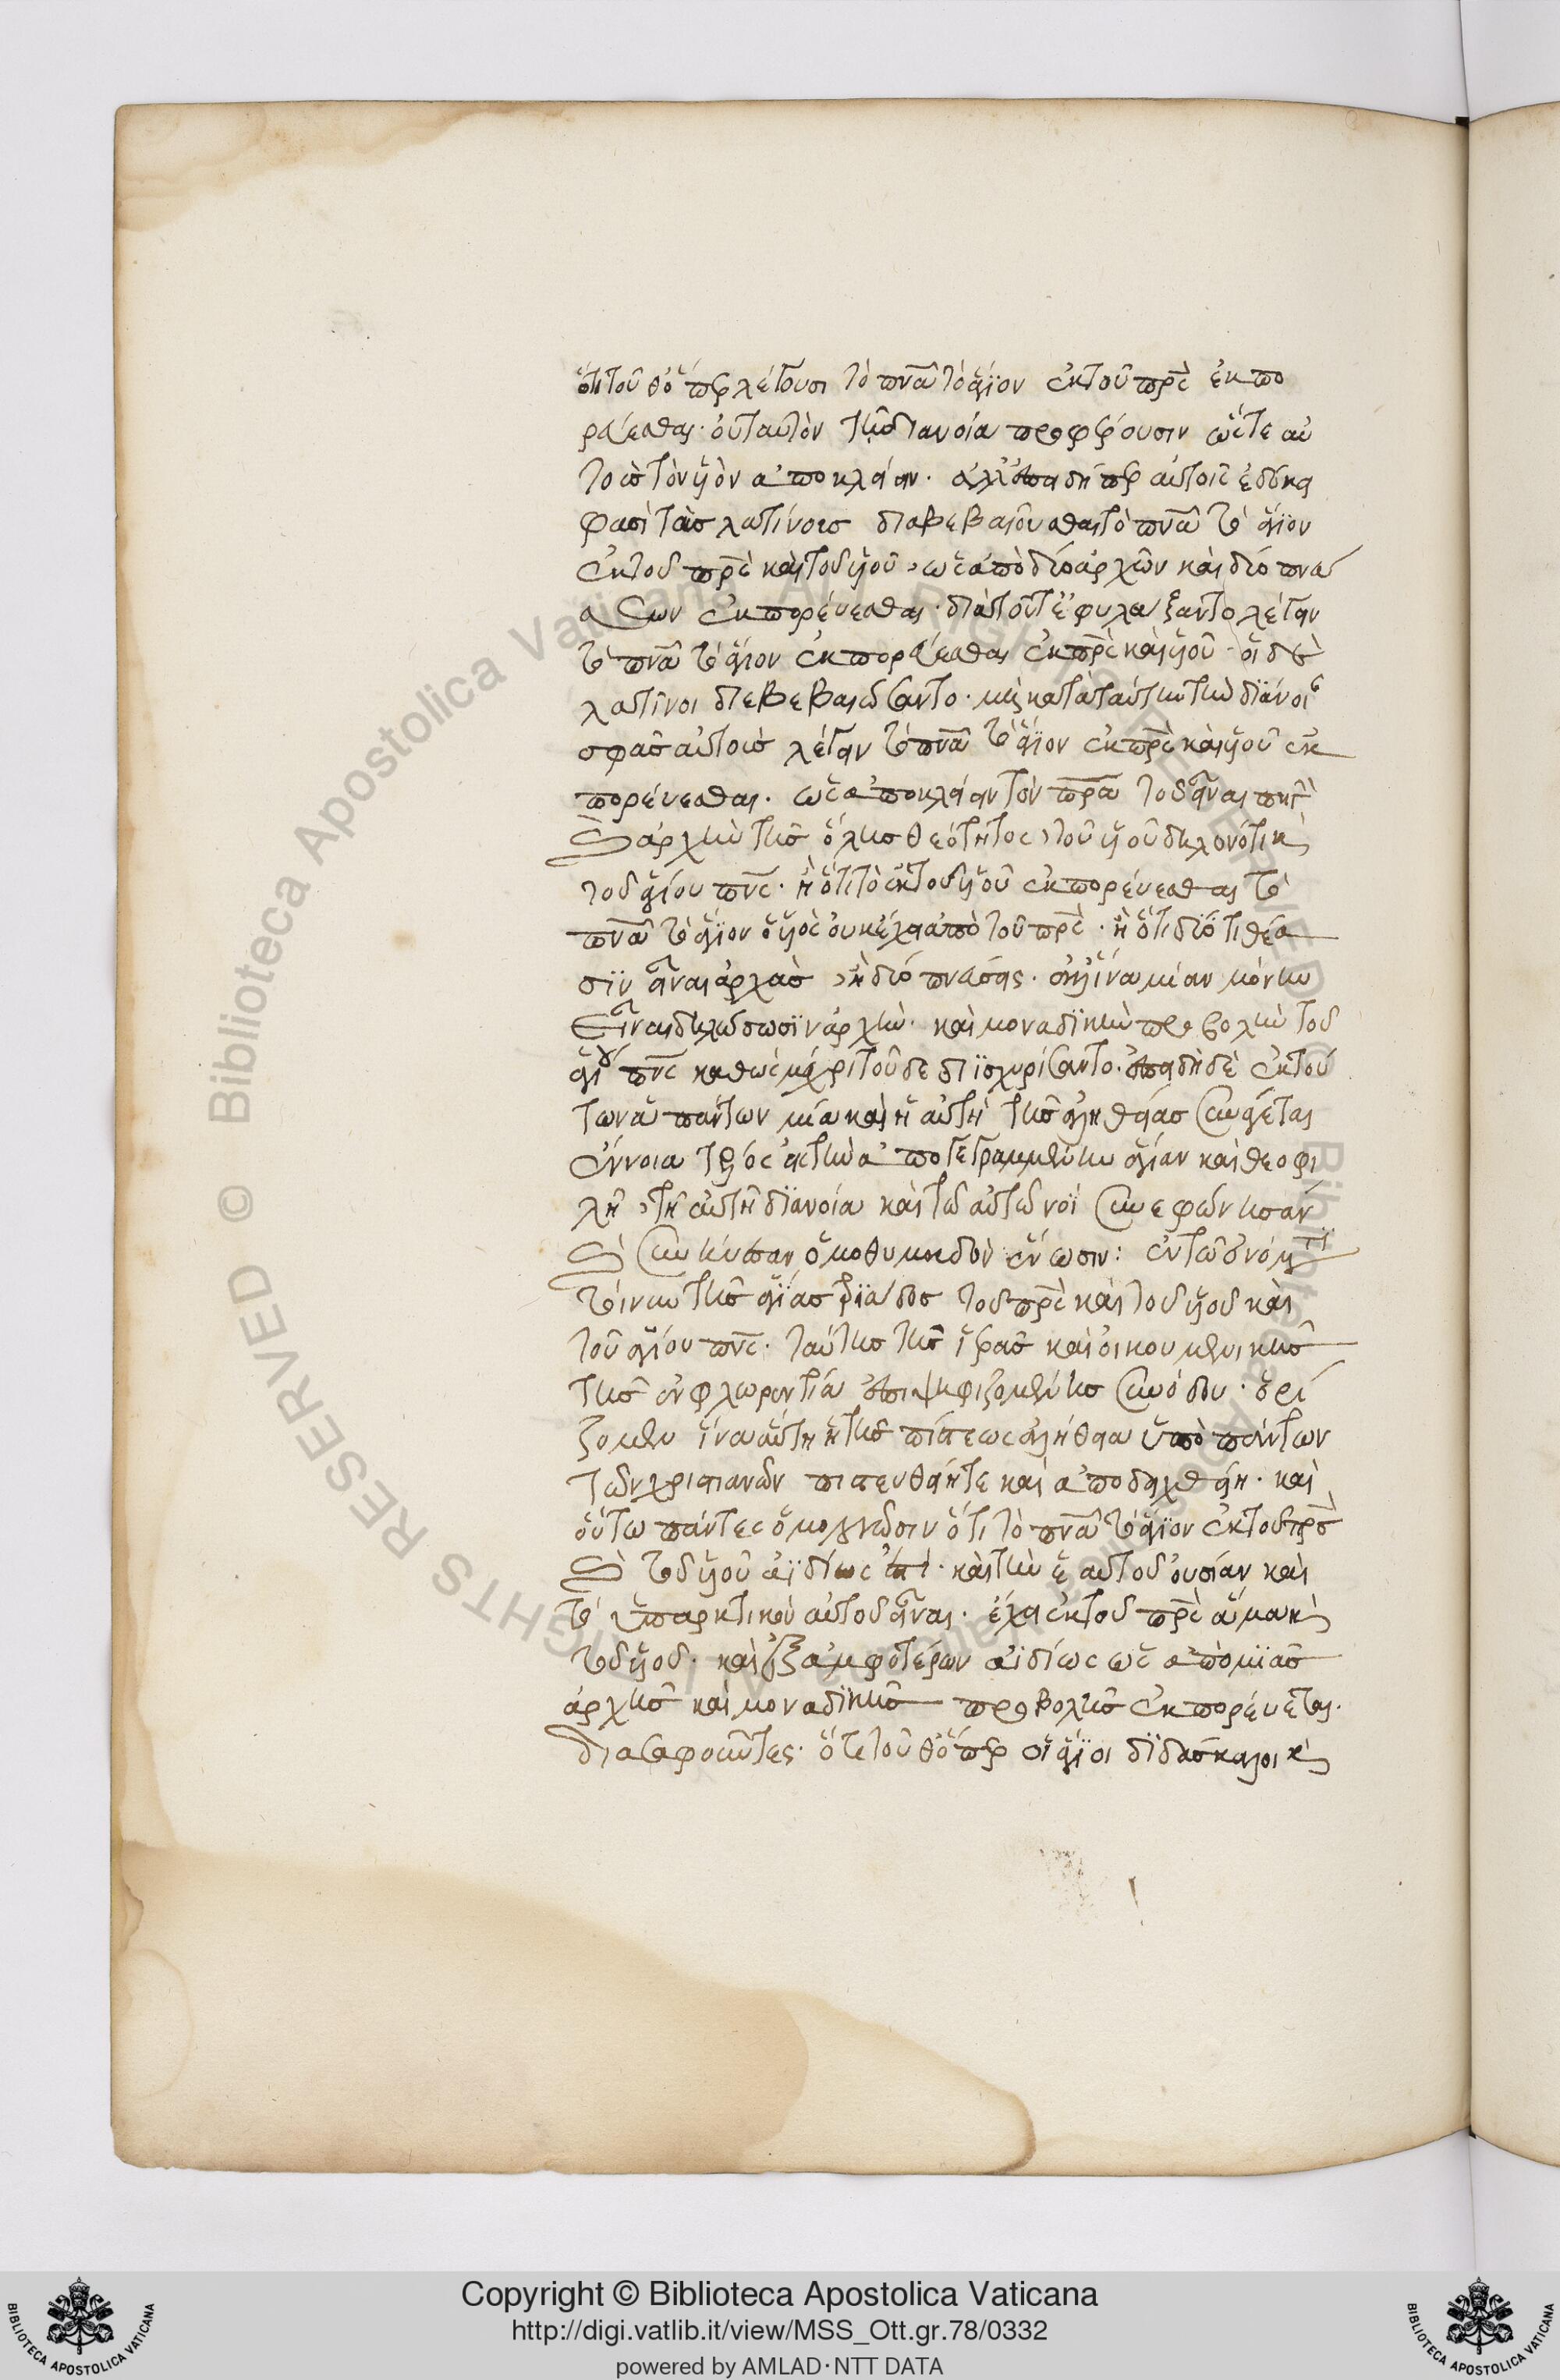 ὅτι τοῦθ' ὅπερ λέγουσι τὸ πνᾶ τὸ ἅγιον ἐκ τοῦ πρς ἐκπο
ρεύεσθαι· οὐ ταύτην τῇ διανοία προφέρουσιν ὥστε αὐ
τοὺς τὸν υἱὸν ἀποκλείειν. ἀλλ' ἐπειδήπερ αὐτοῖς ἐδόκει
φασὶ τοὺς λατίνους διαβεβαιοῦσθαι τὸ πνᾶ τὸ ἅγιον
ἐκ τοῦ πρς καὶ τοῦ υἱοῦ, ὡς ἀπὸ δύο ἀρχῶν καὶ δύο πνεύ
σεων ἐκπορεύεσθαι· διὰ τοῦτ' ἐφυλάξαντο λέγειν
τὸ πνᾶ τὸ ἅγιον ἐκπορεύεσθαι ἐκ πρς καὶ υἱοῦ· οἱ δὲ
λατῖνοι διεβεβαιώσαντο· μὴ κατὰ ταύτην τὴν διάνοι
σφᾶς αὐτοὺς λέγειν τὸ πνᾶ τὸ ἅγιον ἐκ πρς καὶ υἱοῦ ἐκ
πορεύεσθαι. ὡς ἀποκλείειν τὸν πρα τοῦ εἶναι πηγὴ
καὶ ἀρχὴν τῆς ὅλης θεότητος, τοῦ υἱοῦ δηλονότι καὶ
τοῦ ἁγίου πνς. ἢ ὅτι τὸ ἐκ τοῦ υἱοῦ ἐκπορεύεσθαι τὸ
πνᾶ τὸ ἅγιον ὁ υἱὸς οὐκ ἔχει ἀπὸ τοῦ πρς. ἢ ὅτι δύο τιθέα
σιν εἶναι ἀρχὰς, ἢ δύο πνεύσεις. ἀλλ' ἵνα μίαν μόνην
εἶναι δηλώσωσιν ἀρχὴν· καὶ μοναδικὴν προβολὴν τοῦ
ἁγίου πνς καθὼς μέχρι τοῦδε διϊσχυρίσαντο. ἐπειδὴ δὲ ἐκ τού
των ἁπάντων μία καὶ ἡ αὐτὴ τῆς ἀληθείας συνάγεται
ἔννοια τέλος εἰς τὴν ἀπογεγραμμένην ἁγίαν καὶ θεοφι
λῆ, τῇ αὐτῇ διανοία καὶ τῷ αὐτῷ νοΐ συνεφώνησαν
καὶ συνήνεσαν ὁμοθυμαδὸν ἕνωσιν: ἐν τῷ ὀνόματι
τοίνυν τῆς ἁγίας τριάδος τοῦ πρς καὶ τοῦ υἱοῦ καὶ
τοῦ ἁγίου πνς. ταύτης τῆς ἱερᾶς καὶ οἰκουμενικῆς
τῆς ἐν φλωρεντία ἐπιψηφιζομένης συνόδου· ὁρί
ζομεν ἵνα αὕτη ἡ τῆς πίστεως ἀλήθεια ὑπὸ πάντων
τῶν χριστιανῶν πιστευθείη τε καὶ ἀποδειχθείη. καὶ
οὕτω πάντες ὁμολογῶσιν ὅτι τὸ πνᾶ τὸ ἅγιον ἐκ τοῦ πρς
καὶ τοῦ υἱοῦ ἀϊδίως ἐστί· καὶ τὴν ἑαυτοῦ οὐσίαν καὶ
τὸ ὑπαρκτικὸν αὐτοῦ εἶναι. ἔχει ἐκ τοῦ πρς ἅμα καὶ
τοῦ υἱοῦ. καὶ ἐξ ἀμφοτέρων ἀϊδίως ὡς ἀπὸ μιᾶς
ἀρχῆς καὶ μοναδικῆς προβολῆς ἐκπορεύεται.
διασαφοῦντες· ὅτι τοῦθ' ὅπερ οἱ ἅγιοι διδάσκαλοι καὶ
Copyright © Biblioteca Apostolica Vaticana
http://digi.vatlib.it/view/MSS_Ott.gr.78/0332
powered by AMLAD·NTT DATA